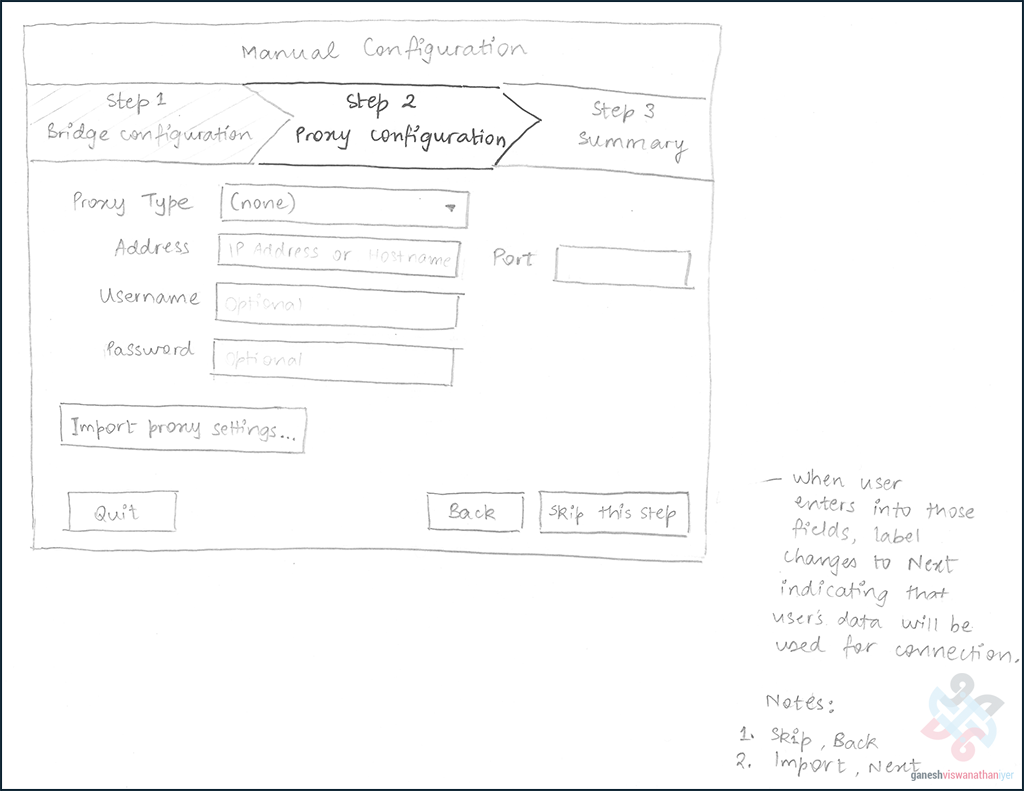 Manual Configuration
Step 1
Bridge configuration
Step 2
Proxy configuration
Step 3
Summary
Proxy Type
(none)
Address
IP Address or Hostname
Port
Username
Optional
Password
Optional
Import proxy settings...
Quit
Back
Skip this step
— When user
enters into those
fields, label
changes to Next
indicating that
user's data will be
used for connection.
Notes:
1. Skip, Back
2. Import, Next
ganeshviswanathaniyer